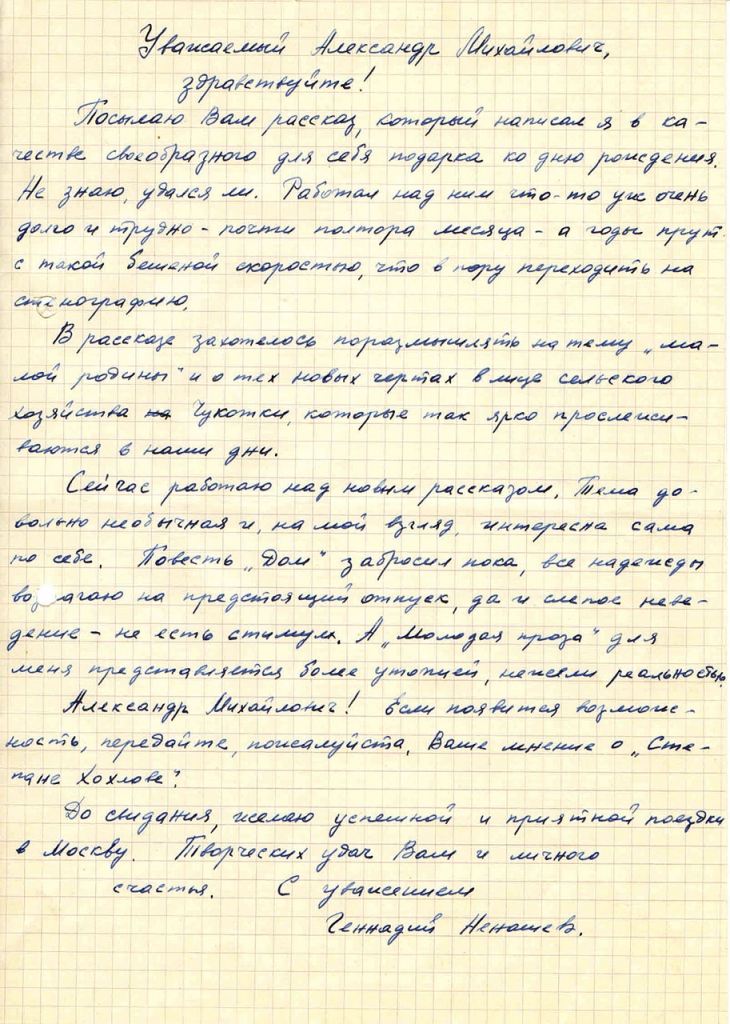 Уважаемый Александр Михайлович,
здравствуйте!
Посылаю Вам рассказ, который написал я в ка-
честве своеобразного для себя подарка ко дню рождения.
Не знаю, удался ли. Работал над ним что-то уж очень
долго и трудно - почти полтора месяца - а годы прут
с такой бешеной скоростью, что в пору переходить на
стенографию.
В рассказе захотелось поразмышлять на тему „ма-
лой родины" и о тех новых чертах в лице сельского
хозяйства на Чукотки, которые так ярко прослежи-
ваются в наши дни.
Сейчас работаю над новым рассказом. Тема до-
вольно необычная и, на мой взгляд, интересна сама
по себе. Повесть „Дом" забросил пока, все надежды
возлагаю на предстоящий отпуск, да и слепое неве-
дение - не есть стимул. А „Молодая проза" для
меня представляется более утопией, нежели реальностью.
Александр Михайлович! Если появится возмож-
ность, передайте, пожалуйста, Ваше мнение о „Сте-
пане Хохлове".
До свидания, желаю успешной и приятной поездки
в Москву. Творческих удач Вам и личного
счастья. С уважением
Геннадий Ненашев.